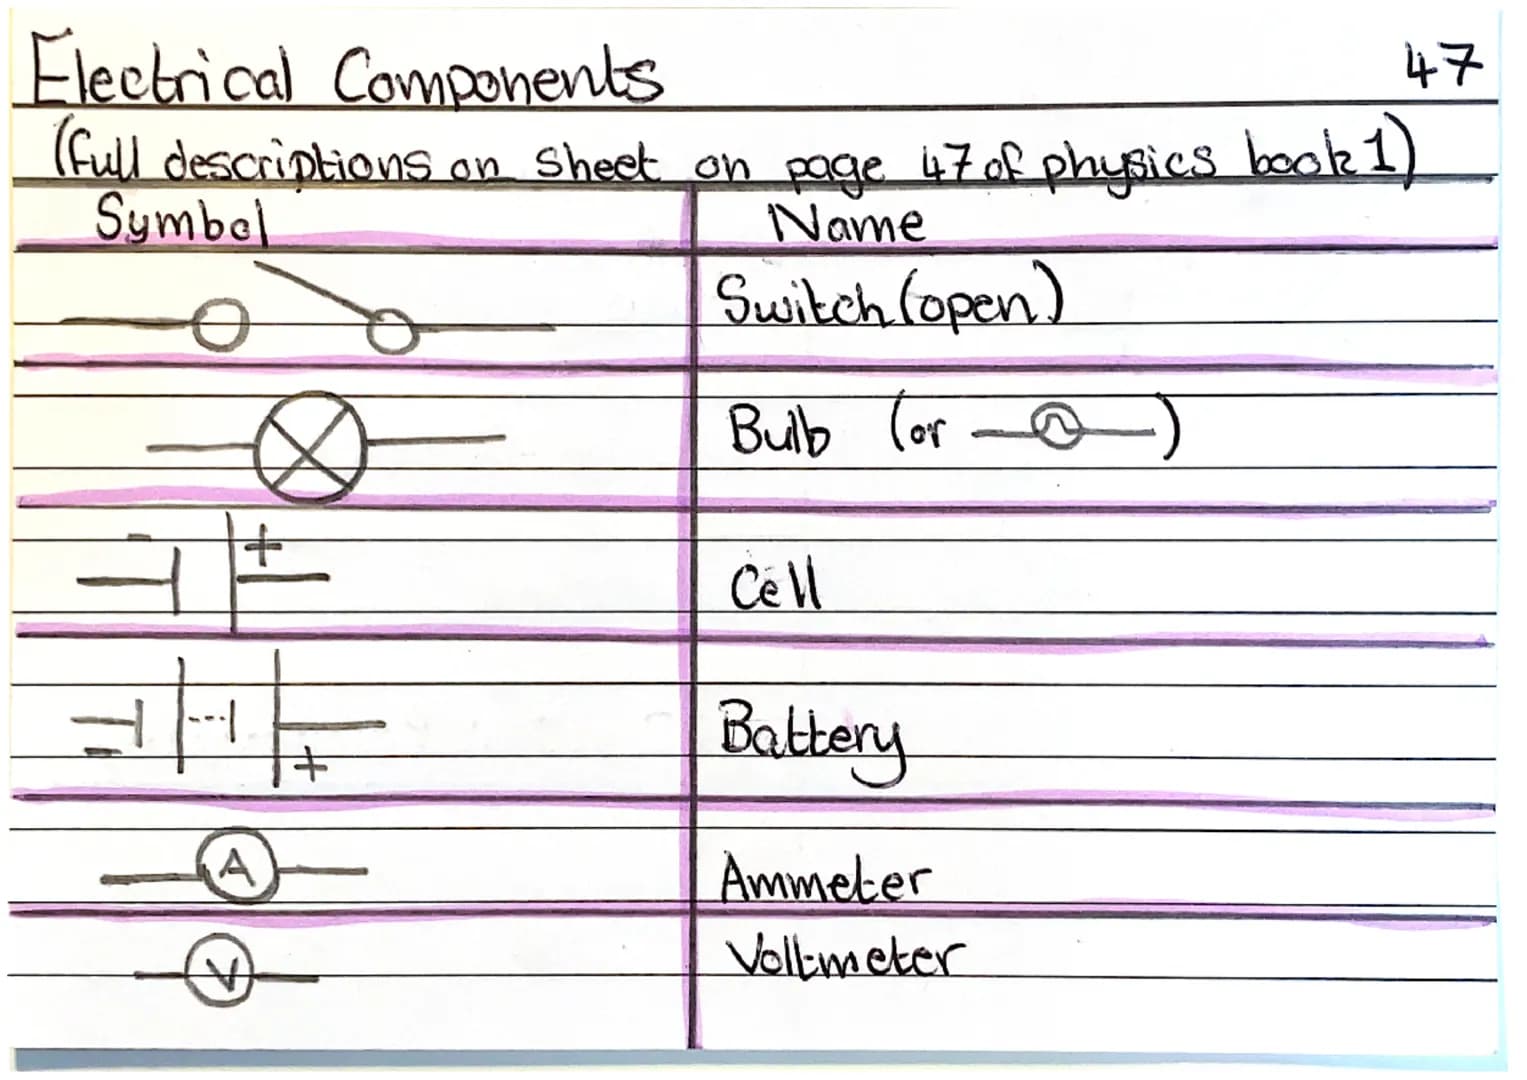 Electrical Components 47
(full descriptions on sheet on page 47 of physics book 1)
Symbol Name
Switch (open)
Bulb (or )
- +
Cell
- +
Battery
A Ammeter
V Voltmeter